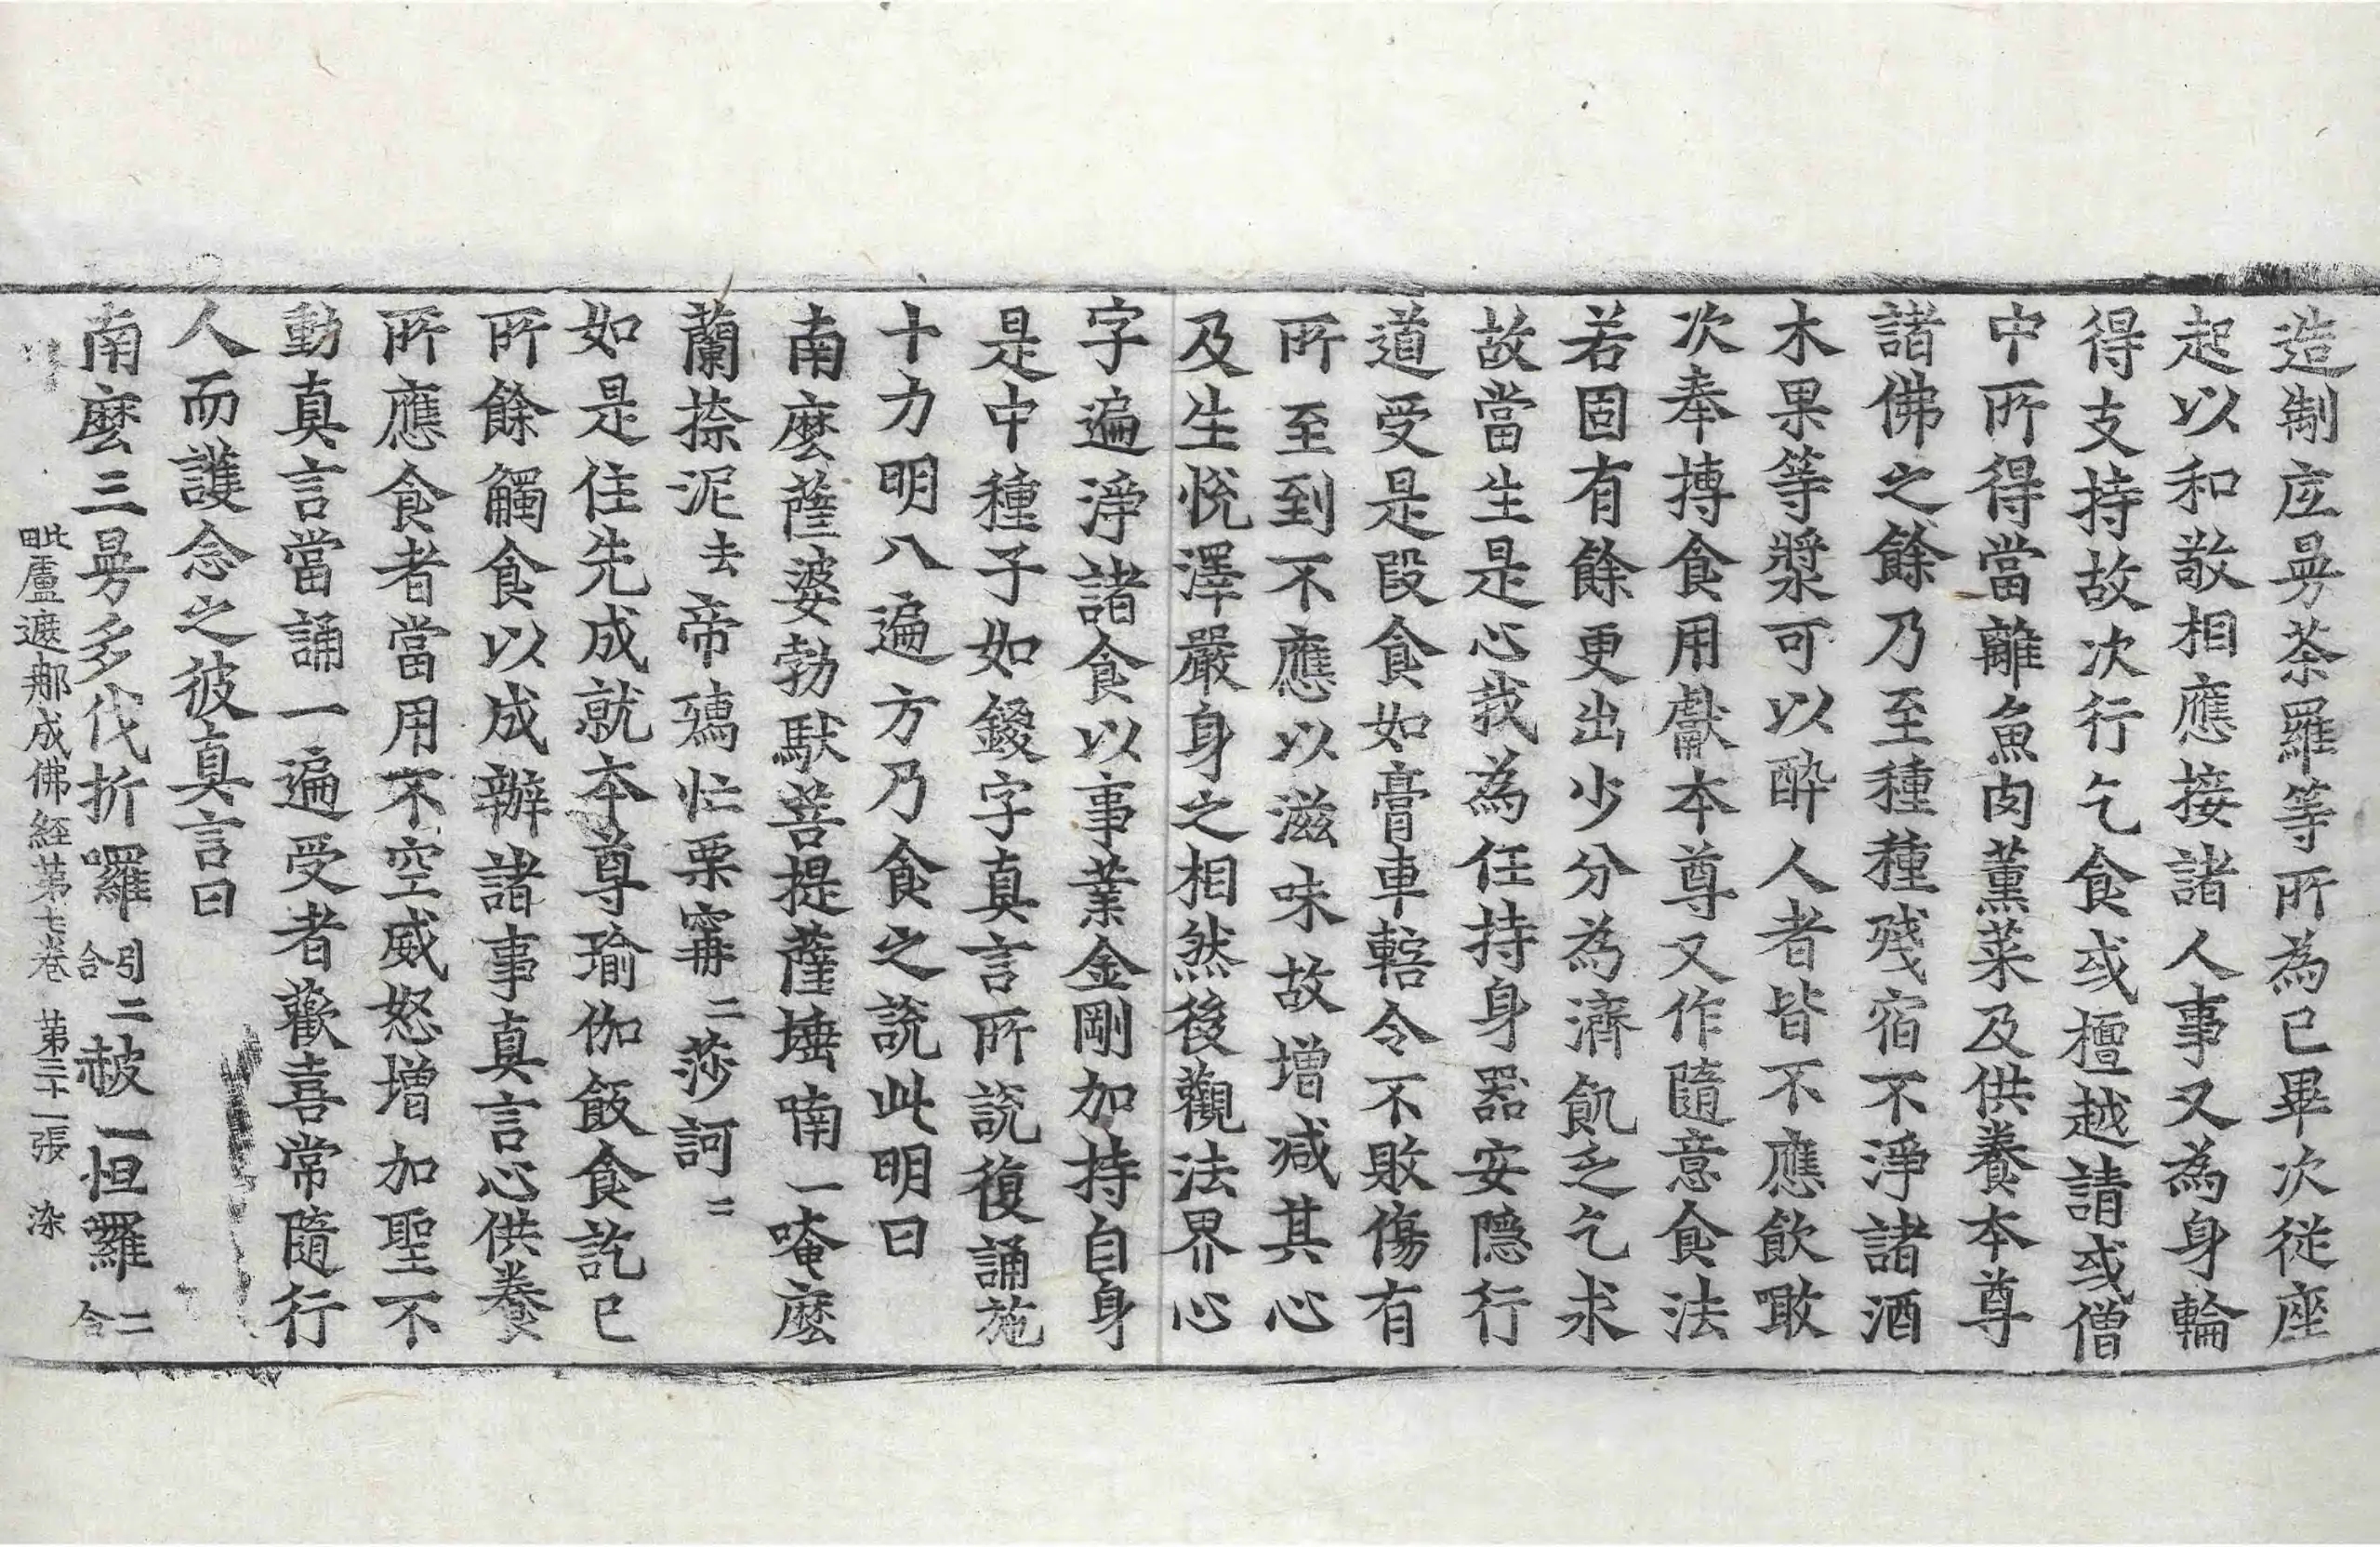 造制㡳曼荼羅等所為已畢次從座
起以和敬相應接諸人事又為身輪
得支持故次行乞食或檀越請或僧
中所得當離魚肉薰菜及供養本尊
諸佛之餘乃至種種殘宿不淨諸酒
木果等漿可以醉人者皆不應飲噉
次奉摶食用獻本尊又作隨意食法
若固有餘更出少分為濟飢乏乞求
故當生是心我為任持身器安隱行
道受是段食如膏車轄令不敗傷有
所至到不應以滋味故增減其心
及生悅澤嚴身之相然後觀法界心
字遍淨諸食以事業金剛加持自身
是中種子如鑁字真言所說復誦施
十力明八遍方乃食之說此明曰
南麼薩婆勃馱菩提薩埵喃一唵麼
蘭捺泥去帝孺忙栗寗二莎訶二
如是住先成就本尊瑜伽飯食訖已
所餘觸食以成辦諸事真言心供養
所應食者當用不空威怒增加聖不
動真言當誦一遍受者歡喜常隨行
人而護念之彼真言曰
南麼三曼多伐折囉引二合赧一怛羅二合
毗盧遮那成佛經第七卷 第二十一張 染